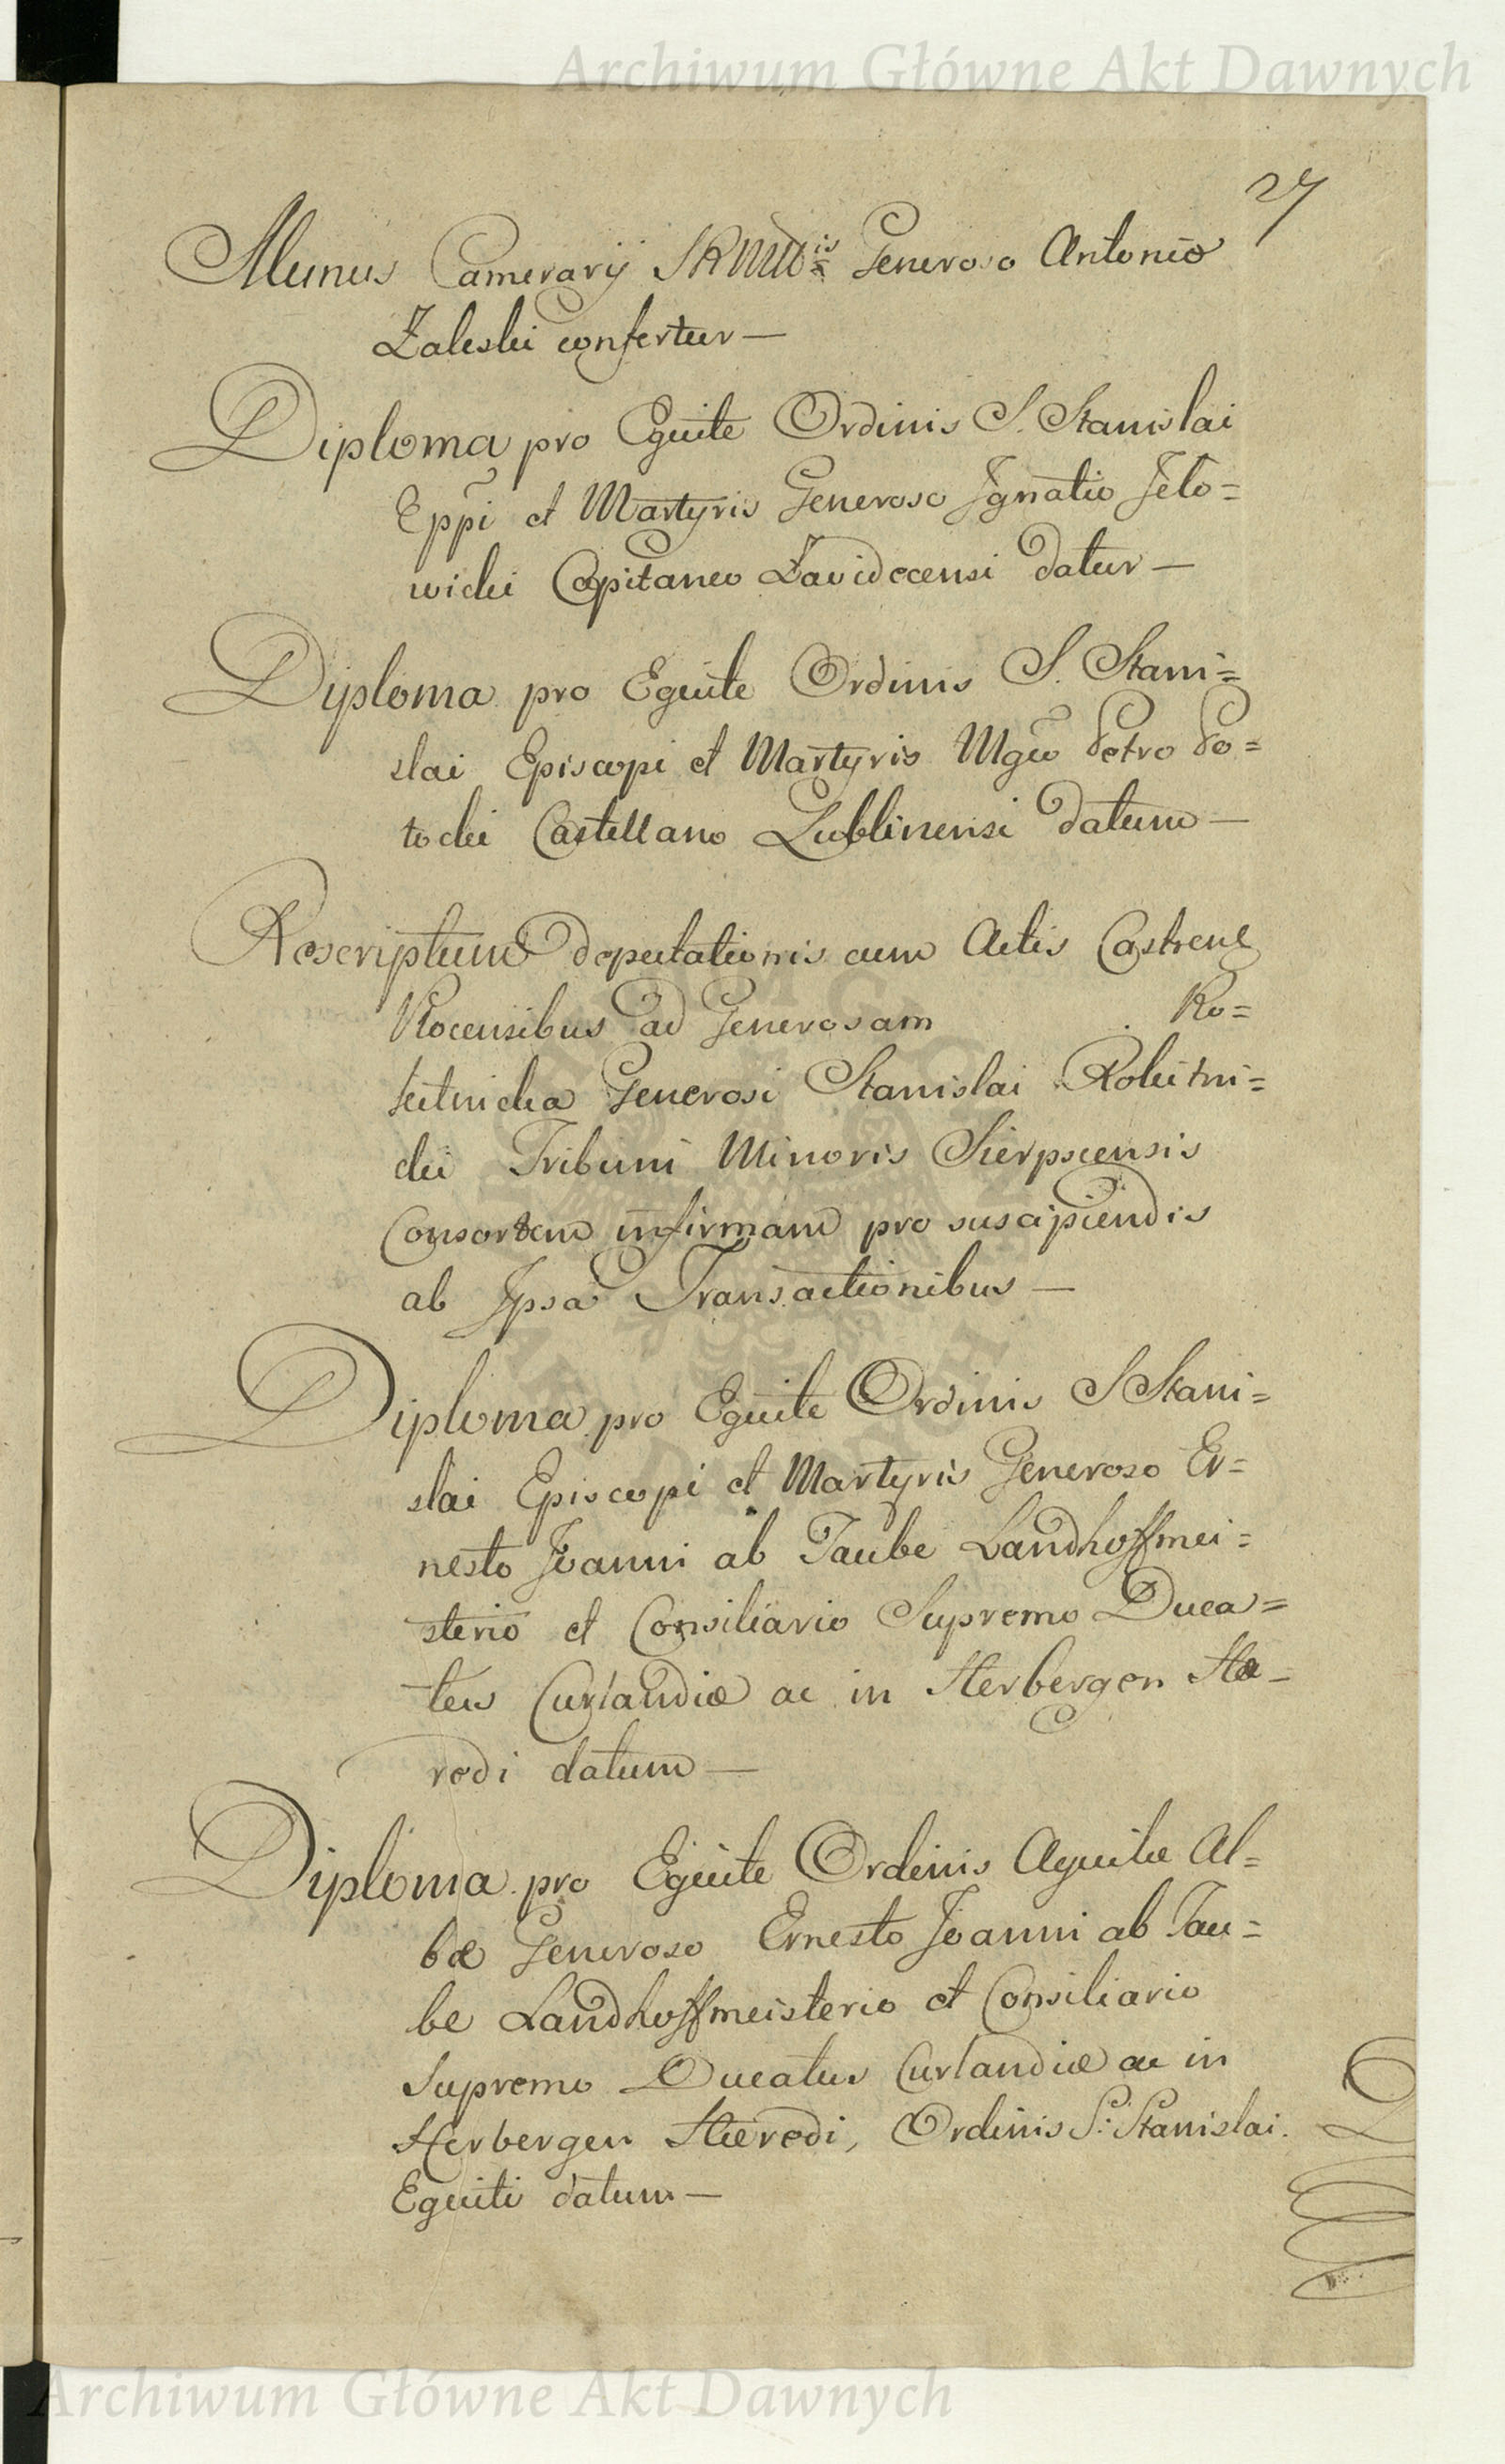 Archiwum Główne Akt Dawnych
27
Munus Camerarij SRMtis Generoso Antonio
Zaleski confertur —
Diploma pro Equite Ordinis S. Stanislai
Eppi et Martyris Generoso Ignatio Jeło=
wicki Capitaneo Zavidocensi datur —
Diploma pro Equite Ordinis S. Stani=
slai Episcopi et Martyris Mgco Petro Po=
tocki Castellano Lublinensi datum —
Rescriptum deputationis cum Actis Castren
Plocensibus ad Generosam Ro=
kitnicka Generosi Stanislai Rokitni=
cki Tribuni Minoris Sierpscensis
Consortem infirmam pro suscipiendis
ab Ipsa Transactionibus —
Diploma pro Equite Ordinis S Stani=
slai Episcopi et Martyris Generoso Er=
nesto Joanni ab Taube Landhoffmei=
sterio et Consiliario Supremo Duca=
tus Curlandiæ ac in Herbergen Hæ=
redi datum —
Diploma pro Equite Ordinis Aquilæ Al=
bæ Generoso Ernesto Joanni ab Tau=
be Landhoffmeisterio et Consiliario
Supremo Ducatus Curlandiæ ac in
Herbergen Hæredi, Ordinis S: Stanislai
Equiti datum —
Archiwum Główne Akt Dawnych